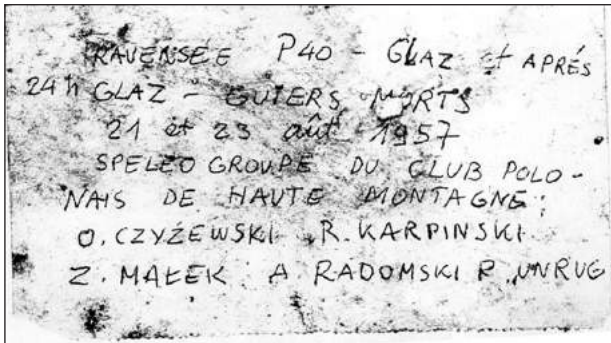 TRAVENSÉE P40 - GLAZ et APRÉS
24h GLAZ - GUIERS MORTS
21 et 23 aût 1957
SPELEO GROUPE DU CLUB POLO-
NAIS DE HAUTE MONTAGNE:
O. CZYŻEWSKI R. KARPINSKI
Z. MAŁEK A RADOMSKI P UNRUG